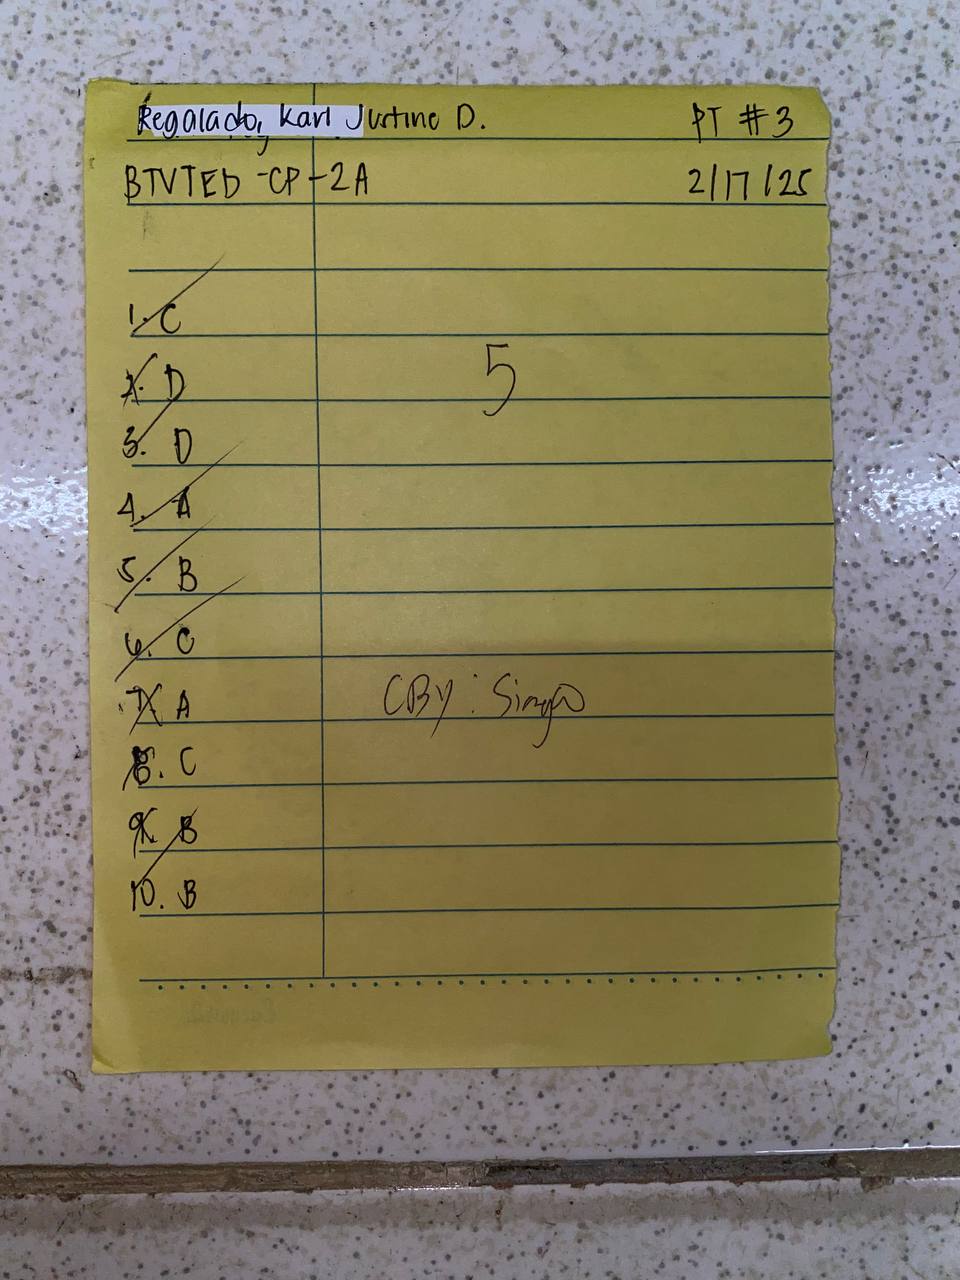 Regalado, Karl Justine D. PT #3
BTVTED-CP-2A 2/17/25
1. C
2. D
5
3. D
4. A
5. B
6. C
7. A
CBY:
8. C
9. B
10. B